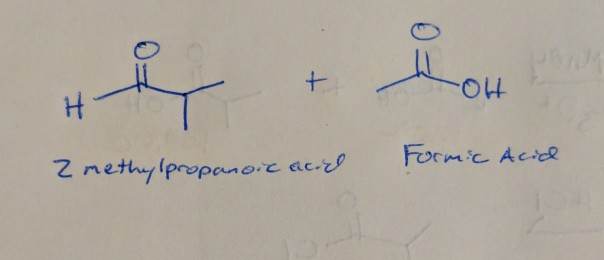 O O
H + OH
2 methylpropanoic acid Formic Acid